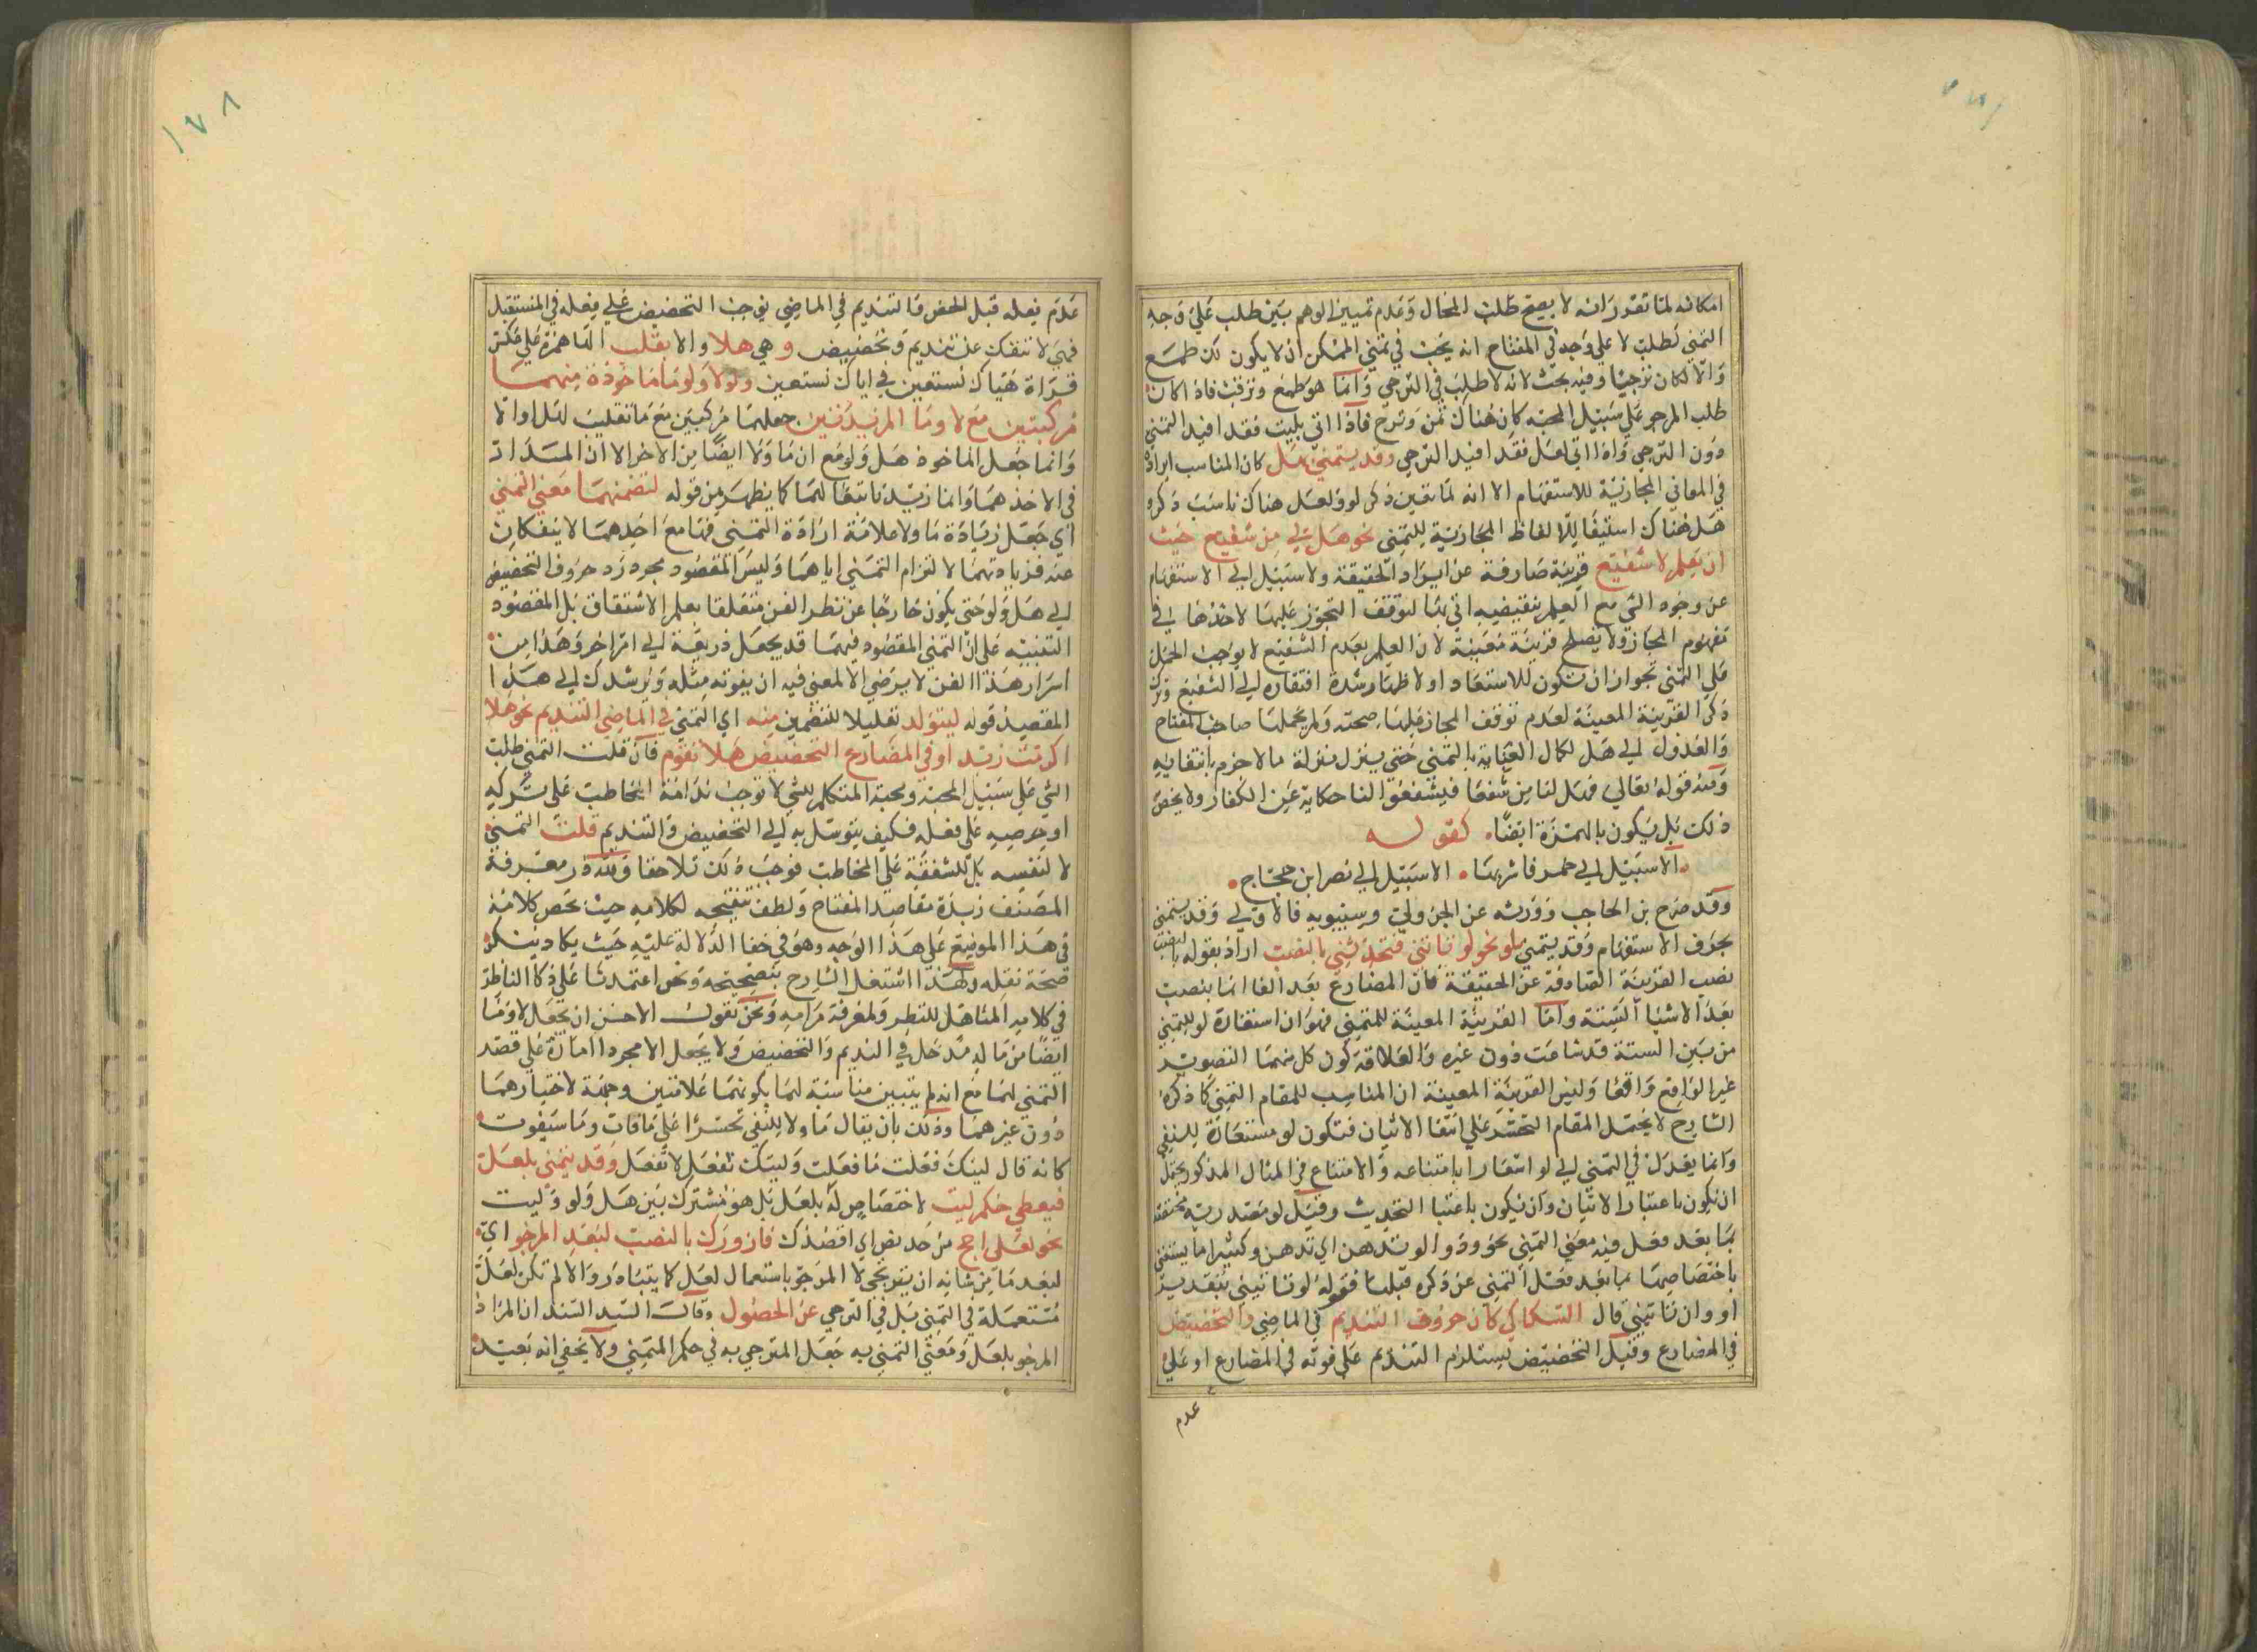 امكانه لما تقرر انه لا يصح طلب المحال وعدم تمييز الوهم بين طلب علي وجه
التمني لطلب لا علي وجه في المفتاح انه يجب في تمني الممكن ان لا يكون لك طمع
والا لكان ترجيا وفيه بحث لانه لا طلب في الترجي وانما هو طمع وترقب فاذا كان
طلب المرجو علي سبيل المحبة كان هناك تمن وترج فاذا اتي بليت فقد افيد التمني
دون الترجي واذا اتي لعل فقد افيد الترجي وقد يتمني بهل كان المناسب ايراده
في المعاني المجازية للاستفهام الا انه لما تعين ذكر لو ولعل هناك ناسب ذكره
هل هناك استيفا للالفاظ المجازية للتمني نحو هل لي من شفيع حيث
ان يعلم لا شفيع قرينة صارفة عن ايراد الحقيقة ولا سبيل الي الاستفهام
عن وجود الشي مع العلم بنقيضه اتي بها لتوقف التجوز عليها لاخذها في
مفهوم المجاز ولا يصلح قرينة معينة لان العلم بعدم الشفيع لا يوجب الحمل
علي التمني لجواز ان تكون للاستبعاد او لاظهار شدة افتقاره الي الشفيع وترك
ذكر القرينة المعينة لعدم توقف المجاز عليها صحته ولم يجعلها صاحب المفتاح
والعدول الي هل لكمال العناية بالتمني حتي ينزل منزلة ما لا جزم بانتفايه
ومنه قوله تعالي فهل لنا من شفعا فيشفعوا لنا حكاية عن الكفار ولا يخص
ذلك بل يكون بالهمزة ايضا كقوله
الا سبيل الي خمر فاشربها الا سبيل الي نصر ابن حجاج
وقد صرح بن الحاجب وورثه عن الجزولي وسيبويه فالاولي وقد يتمني
بحرف الاستفهام وقد يتمني بلو نحو لو تاتني فتحدثني بالنصب اراد بقوله بالنصب
نصب القرينة الصادقة عن الحقيقة فان المضارع بعد الفا انما ينصب
بعد الاشيا الستة واما القرينة المعينة للتمني فهو ان استعارة لو للتمني
من بين الستة قد شاعت دون غيره والعلاقة كون كل منهما التصوير
غير الواقع واقعا وليس القرينة المعينة ان المناسب للمقام التمني كما ذكره
الشارح لا يحتمل المقام التحسر علي انتفا الاتيان فتكون لو مستعارة للنفي
وانما يعدل في التمني الي لو اشعارا بامتناعه والامتناع في المثال المذكور يحتمل
ان يكون باعتبار الاتيان وان يكون باعتبا التحديث وقيل لو مصدرية مختصة
بما بعد فعل فيه معني التمني نحو ودوا لو تدهن اي تدهن وكثيرا ما يستغني
باختصاصها بما بعد فعل التمني عن ذكره قبلها فقوله لو تاتيني بتقدير
او وان تاتيني قال السكاكي كان حروف التنديم في الماضي والتحضيض
في المضارع وقيل التحضيض يستلزم التنديم علي فوته في المضارع او علي
عدم
١٧٨
عدم فعله قبل الحض فالتنديم في الماضي يوجب التحضيض علي فعله في المستقبل
فهي لا تنفك عن تنديم وتحضيض وهي هلا والا بقلب الها همزة علي عكس
قراة هياك نستعين في اياك نستعين ولولا ولوما ماخوذة منهما
مركبتين مع لا وما المزيدتين جعلهما مركبتين مع ما تغليب لهل او الا
وانما جعل الماخوذ هل ولو مع ان ما ولا ايضا من الاخر الا ان المبدا ان
في الاخذ هما وانما زيد تابعا لهما كما يظهر من قوله لتضمنهما معني التمني
اي جعل زيادة ما ولا علامة ارادة التمني فهما مع احدهما لا ينفكان
عنه فزيادتهما لا لتزام التمني اياهما وليس المقصود مجرد زد حروف التحضيض
الي هل ولو حتي يكون خارجا عن نظر الفن متعلقا بعلم الاشتقاق بل المقصود
التنبيه علي ان التمني المقصود فيهما قد يجعل ذريعة الي امر اخر وهذا من
اسرار هذا الفن لا يرضي الالمعي فيه ان يفوته مثله ويرشدك الي هذا
المقصد قوله ليتولد تعليلا للتضمين منه اي التمني في الماضي التنديم نحو هلا
اكرمت زيد او في المضارع التحضيض هلا تقوم فان قلت التمني طلب
الشي علي سبيل المحبة ومحبة المتكلم للشي لا توجب ندامة المخاطب علي تركه
او حرصه علي فعله فكيف يتوسل به الي التحضيض والتنديم قلت التمني
لا لنفسه بل للشفقة علي المخاطب فوجب ذلك تلاحقا ولله در معرفة
المصنف زبدة مقاصد المفتاح ولطف تنقيحه لكلامه حيث لخص كلامه
في هذا الموضع علي هذا الوجه وهو في خفا الدلالة عليه حيث يكاد ينكر
صحة نقله ولهذا اشتغل الشارح بتصحيحه ونحن اعتمدنا علي ذكا الناظر
في كلامه المتاهل للنظر ولمعرفة مرامه ونحن نقول الاحسن ان يجعل لا وما
ايضا من ماله مدخل في التنديم والتحضيض ولا يجعل الا مجردا امارة علي قصد
التمني لها مع انه لم يتبين مناسبة لهما بكونهما علامتين وجهة لاختيارهما
دون غيرهما وذلك بان يقال ما ولا للنفي تحسرا علي ما فات وما سيفوت
كانه قال ليتك فعلت ما فعلت وليتك تفعل لا تفعل وقد يتمني بلعل
فيعطي حكم ليت لا ختصاص له بلعل بل هو مشترك بين هل ولو وليت
نحو لعلي احج من حد نصر اي اقصدك فازورك بالنصب لبعد المرجو اي
لبعد ما من شانه ان يترجي لا المرجو باستعمال لعل كما يتبادر والا لم تكن لعل
مستعملة في التمني بل في الترجي عن الحصول وقال السيد السند ان المراد
المرجو بلعل ومعني التمني به جعل المترجي به في حكم المتمني ولا يخفي انه بعيد